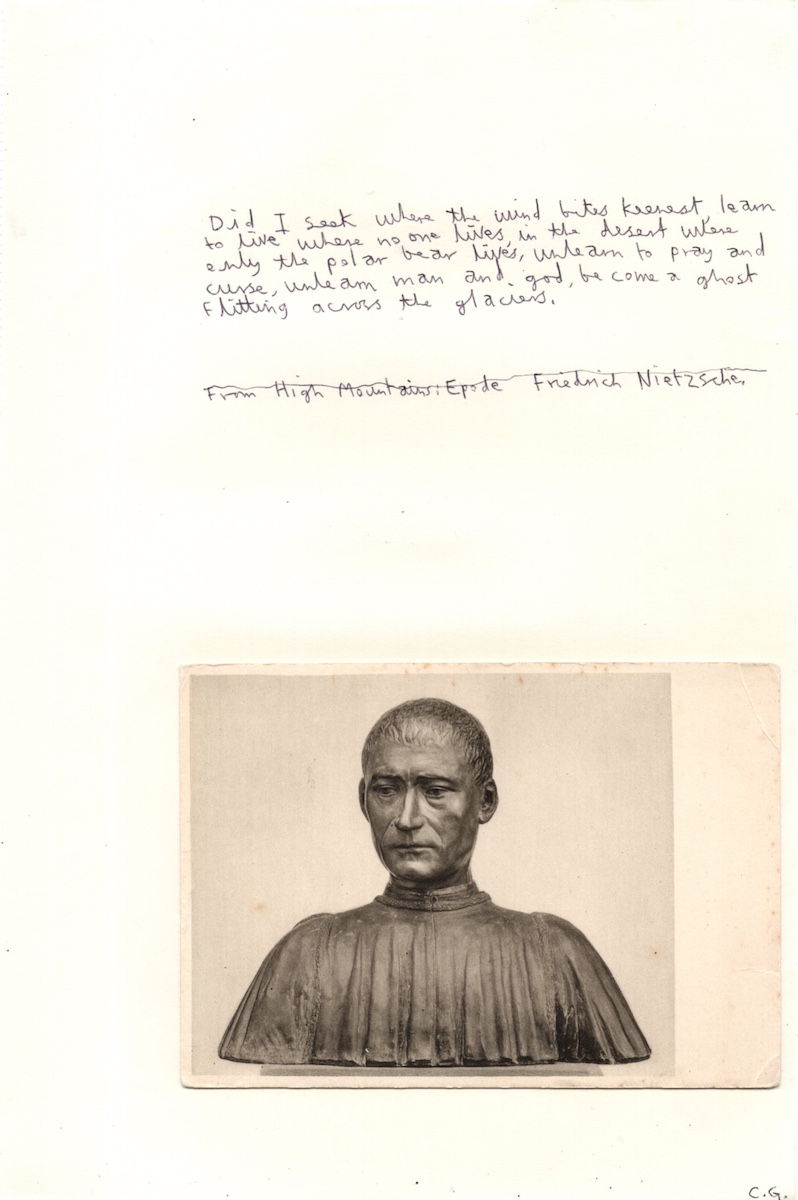 Did I seek where the wind bites keenest, learn
to live where no one lives, in the desert where
only the polar bear lives, unlearn to pray and
curse, unlearn man and god, become a ghost
flitting across the glaciers.
From High Mountains: Epode Friedrich Nietzsche.
C.G.